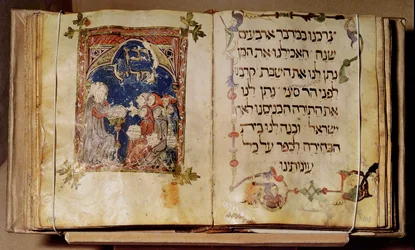 צרכנו במדבר ארבעים
שנה האכילנו את המן
נתן לנו את השבת קרבנו
לפני הר סיני נתן לנו
את התורה הכניסנו לארץ
ישראל ובנה לנו בית
הבחירה לכפר על כל
עונותינו